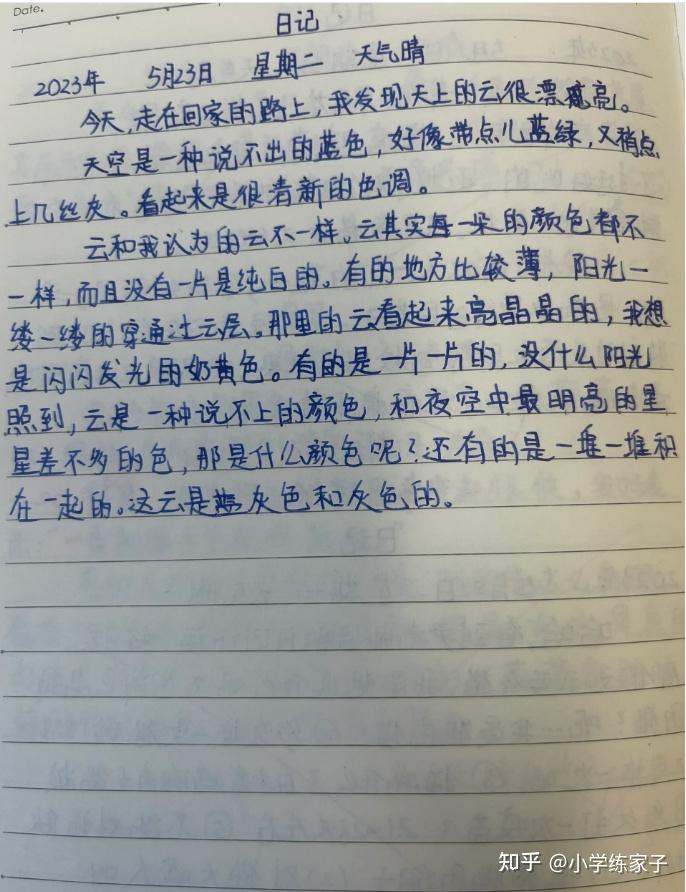 Date.
日记
2023年 5月23日 星期二 天气晴
今天,走在回家的路上,我发现天上的云很漂亮。
天空是一种说不出的蓝色,好像带点儿蓝绿,又稍点
上几丝灰。看起来是很清新的色调。
云和我认为的云不一样。云其实每一朵的颜色都不
一样,而且没有一片是纯白的。有的地方比较薄,阳光一
缕一缕的穿通过云层。那里的云看起来亮晶晶的,我想
是闪闪发光的奶黄色。有的是一片一片的,没什么阳光
照到,云是一种说不上的颜色,和夜空中最明亮的星
星差不多的色,那是什么颜色呢?还有的是一堆一堆积
在一起的。这云是蓝灰色和灰色的。
知乎 @小学练家子